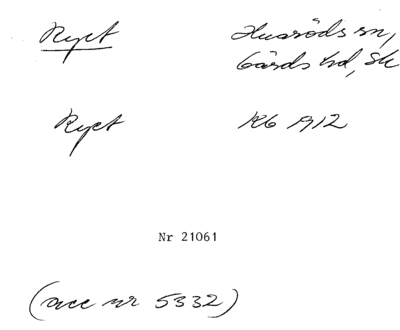 Ryet Huaröds sn,
Gärds hd, Sk
Ryet RG 1912
Nr 21061
(acc nr 5332)